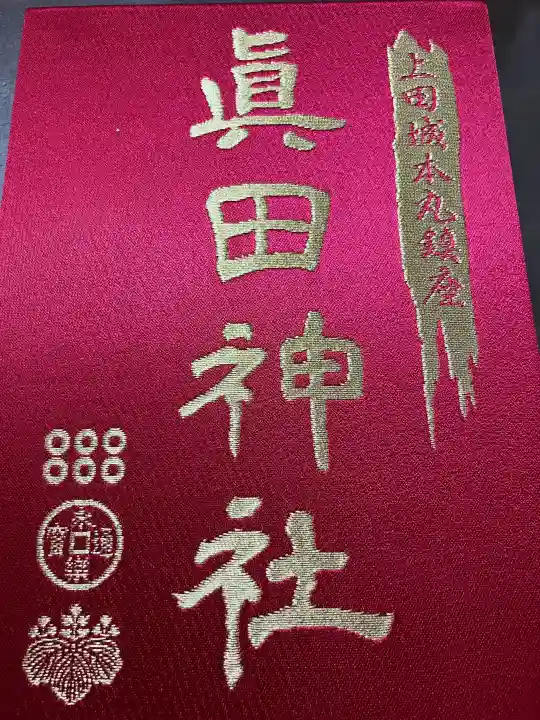 上田城本丸鎮座
眞田神社
永樂通寳